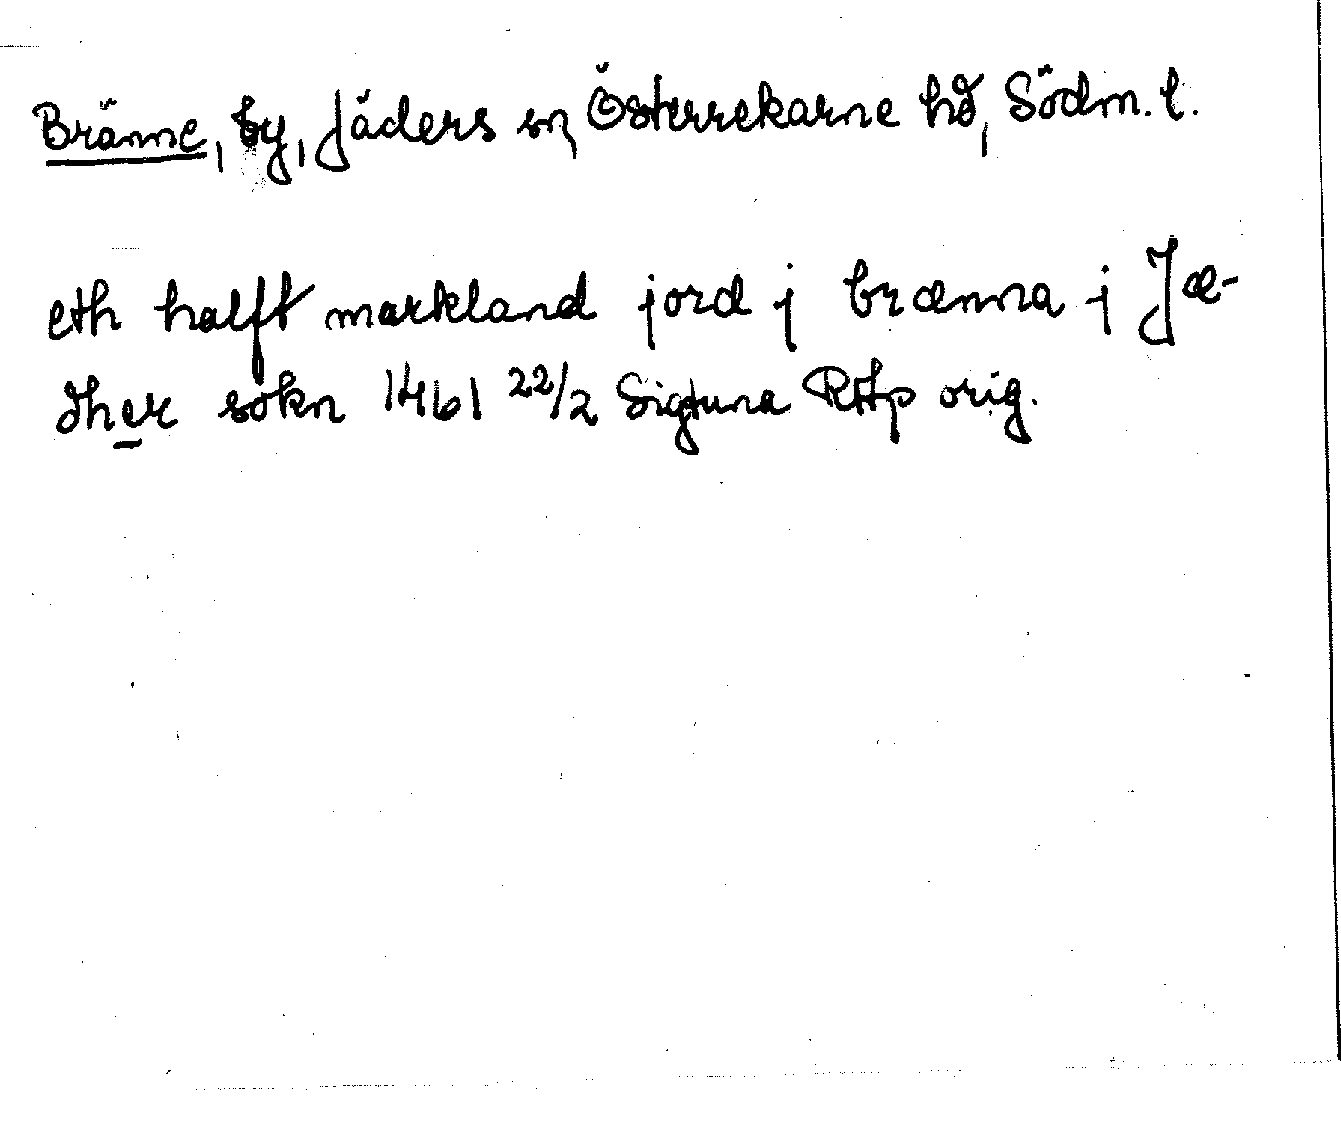 Bränne, by, Jäders sn, Österrekarne hd, Södm. l.
eth halfft markland jord j brænna j Jæ-
dher sokn 1461 22/2 Sigtuna RAp orig.